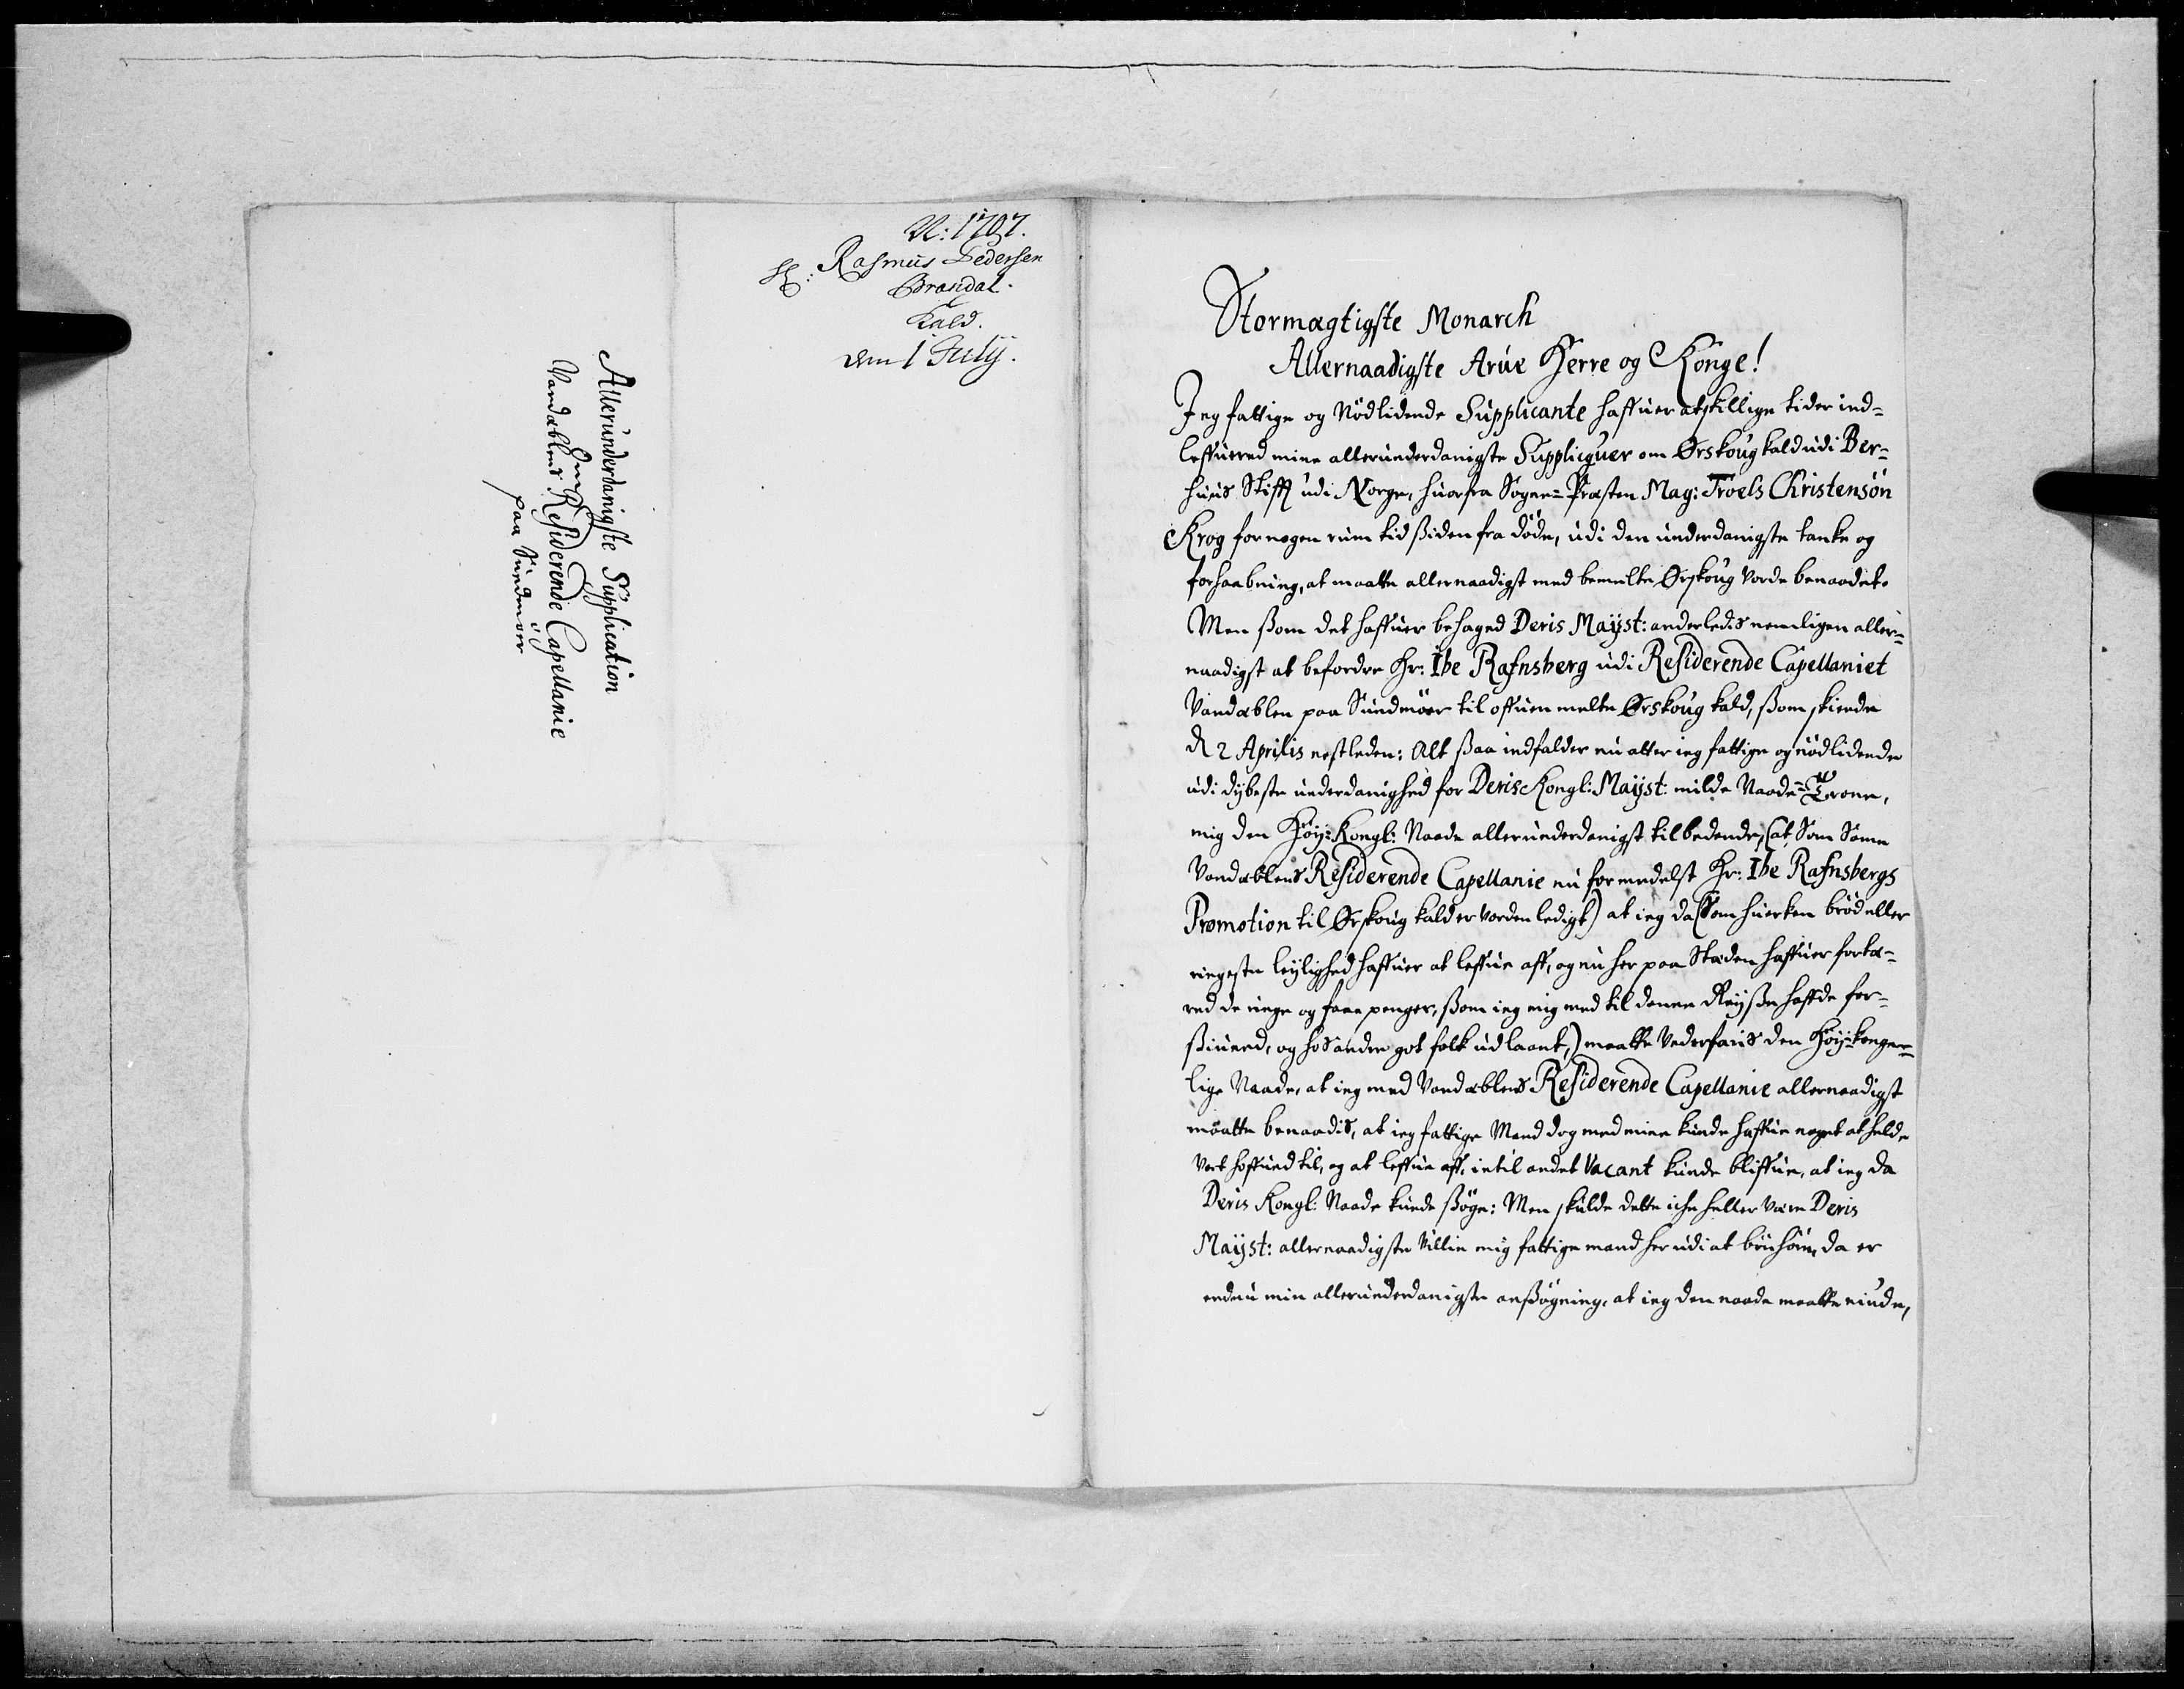 N: 1797.
H: Rasmus Pedersen
Brandal.
Kald.
den 1 July.
Allerunderdanigste Supplication
om
Vandæblens Residerende Capellanie
paa Sundmöer
Stormægtigste Monarch
Allernaadigste Arve Herre og Konge!
Jeg fattige og Nödlidende Supplicante haffuer atskillige tider ind-
leffuered mine allerunderdanigste Supplicquer om Ørskoug kald udi Ber-
huus Stifft udi Norge, huorfra Sogne-Præsten Mag: Troels Christensön
Krog for nogen rum tid ßiden fra döde, udi den underdanigste tanke og
forhaabning, at maatte allernaadigst med bemelte Ørskoug vorde benaadet.
Men ßom det haffuer behaged Deris Mayst: anderledis nemligen aller-
naadigst at befordre Hr: Ibe Rafnsberg udi Residerende Capellaniet
Vandæblen paa Sundmöer til offuenmelte Ørskoug kald, ßom skiende
d 2 Aprilis nestleden: Alt ßaa indfalder nu atter ieg fattige og nödlidende
udi dybeste underdanighed for Deris Kongl: Mayst: milde Naade-Trone,
mig den Höy-Kongl: Naade allerunderdanigst tilbedende, (at som samme
Vandæblens Residerende Capellanie nu formedelst Hr: Ibe Rafnsbergs
Promotion til Ørskoug kald er vorden ledigt) at ieg da (som huerken bröd eller
ringeste leylighed haffuer at leffue aff, og nu her paa Stæden haffuer fortæ-
red de ringe og faae penger, ßom ieg mig med til denne Reyße haffde for-
ßiuned, og hos andre got folk udlaant,) maatte vederfaris den Höy-konge-
lige Naade, at ieg med Vandæblens Residerende Capellanie allernaadigst
maatte benaadis, at ieg fattige Mand dog med mine kunde haffue noget at helde
vort hoffued til, og at leffue aff, intil andet Vacant kunde bliffue, at ieg da
Deris Kongl: Naade kunde ßöge: Men skulde dette iche heller være Deris
Mayst: allernaadigste villie mig fattige mand her udi at bönhöre, da er
endnu min allerunderdanigste anßögning, at ieg den naade maatte niude,